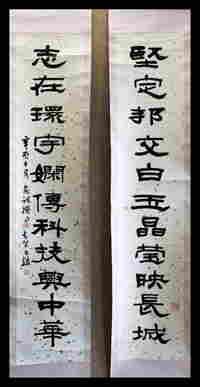 堅定邦交白玉晶瑩映長城
志在環宇嫻傳科技興中華